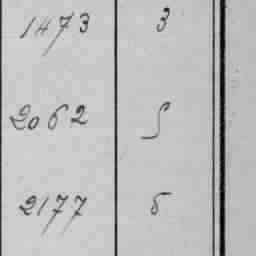 1473 3
2062 5
2177 5